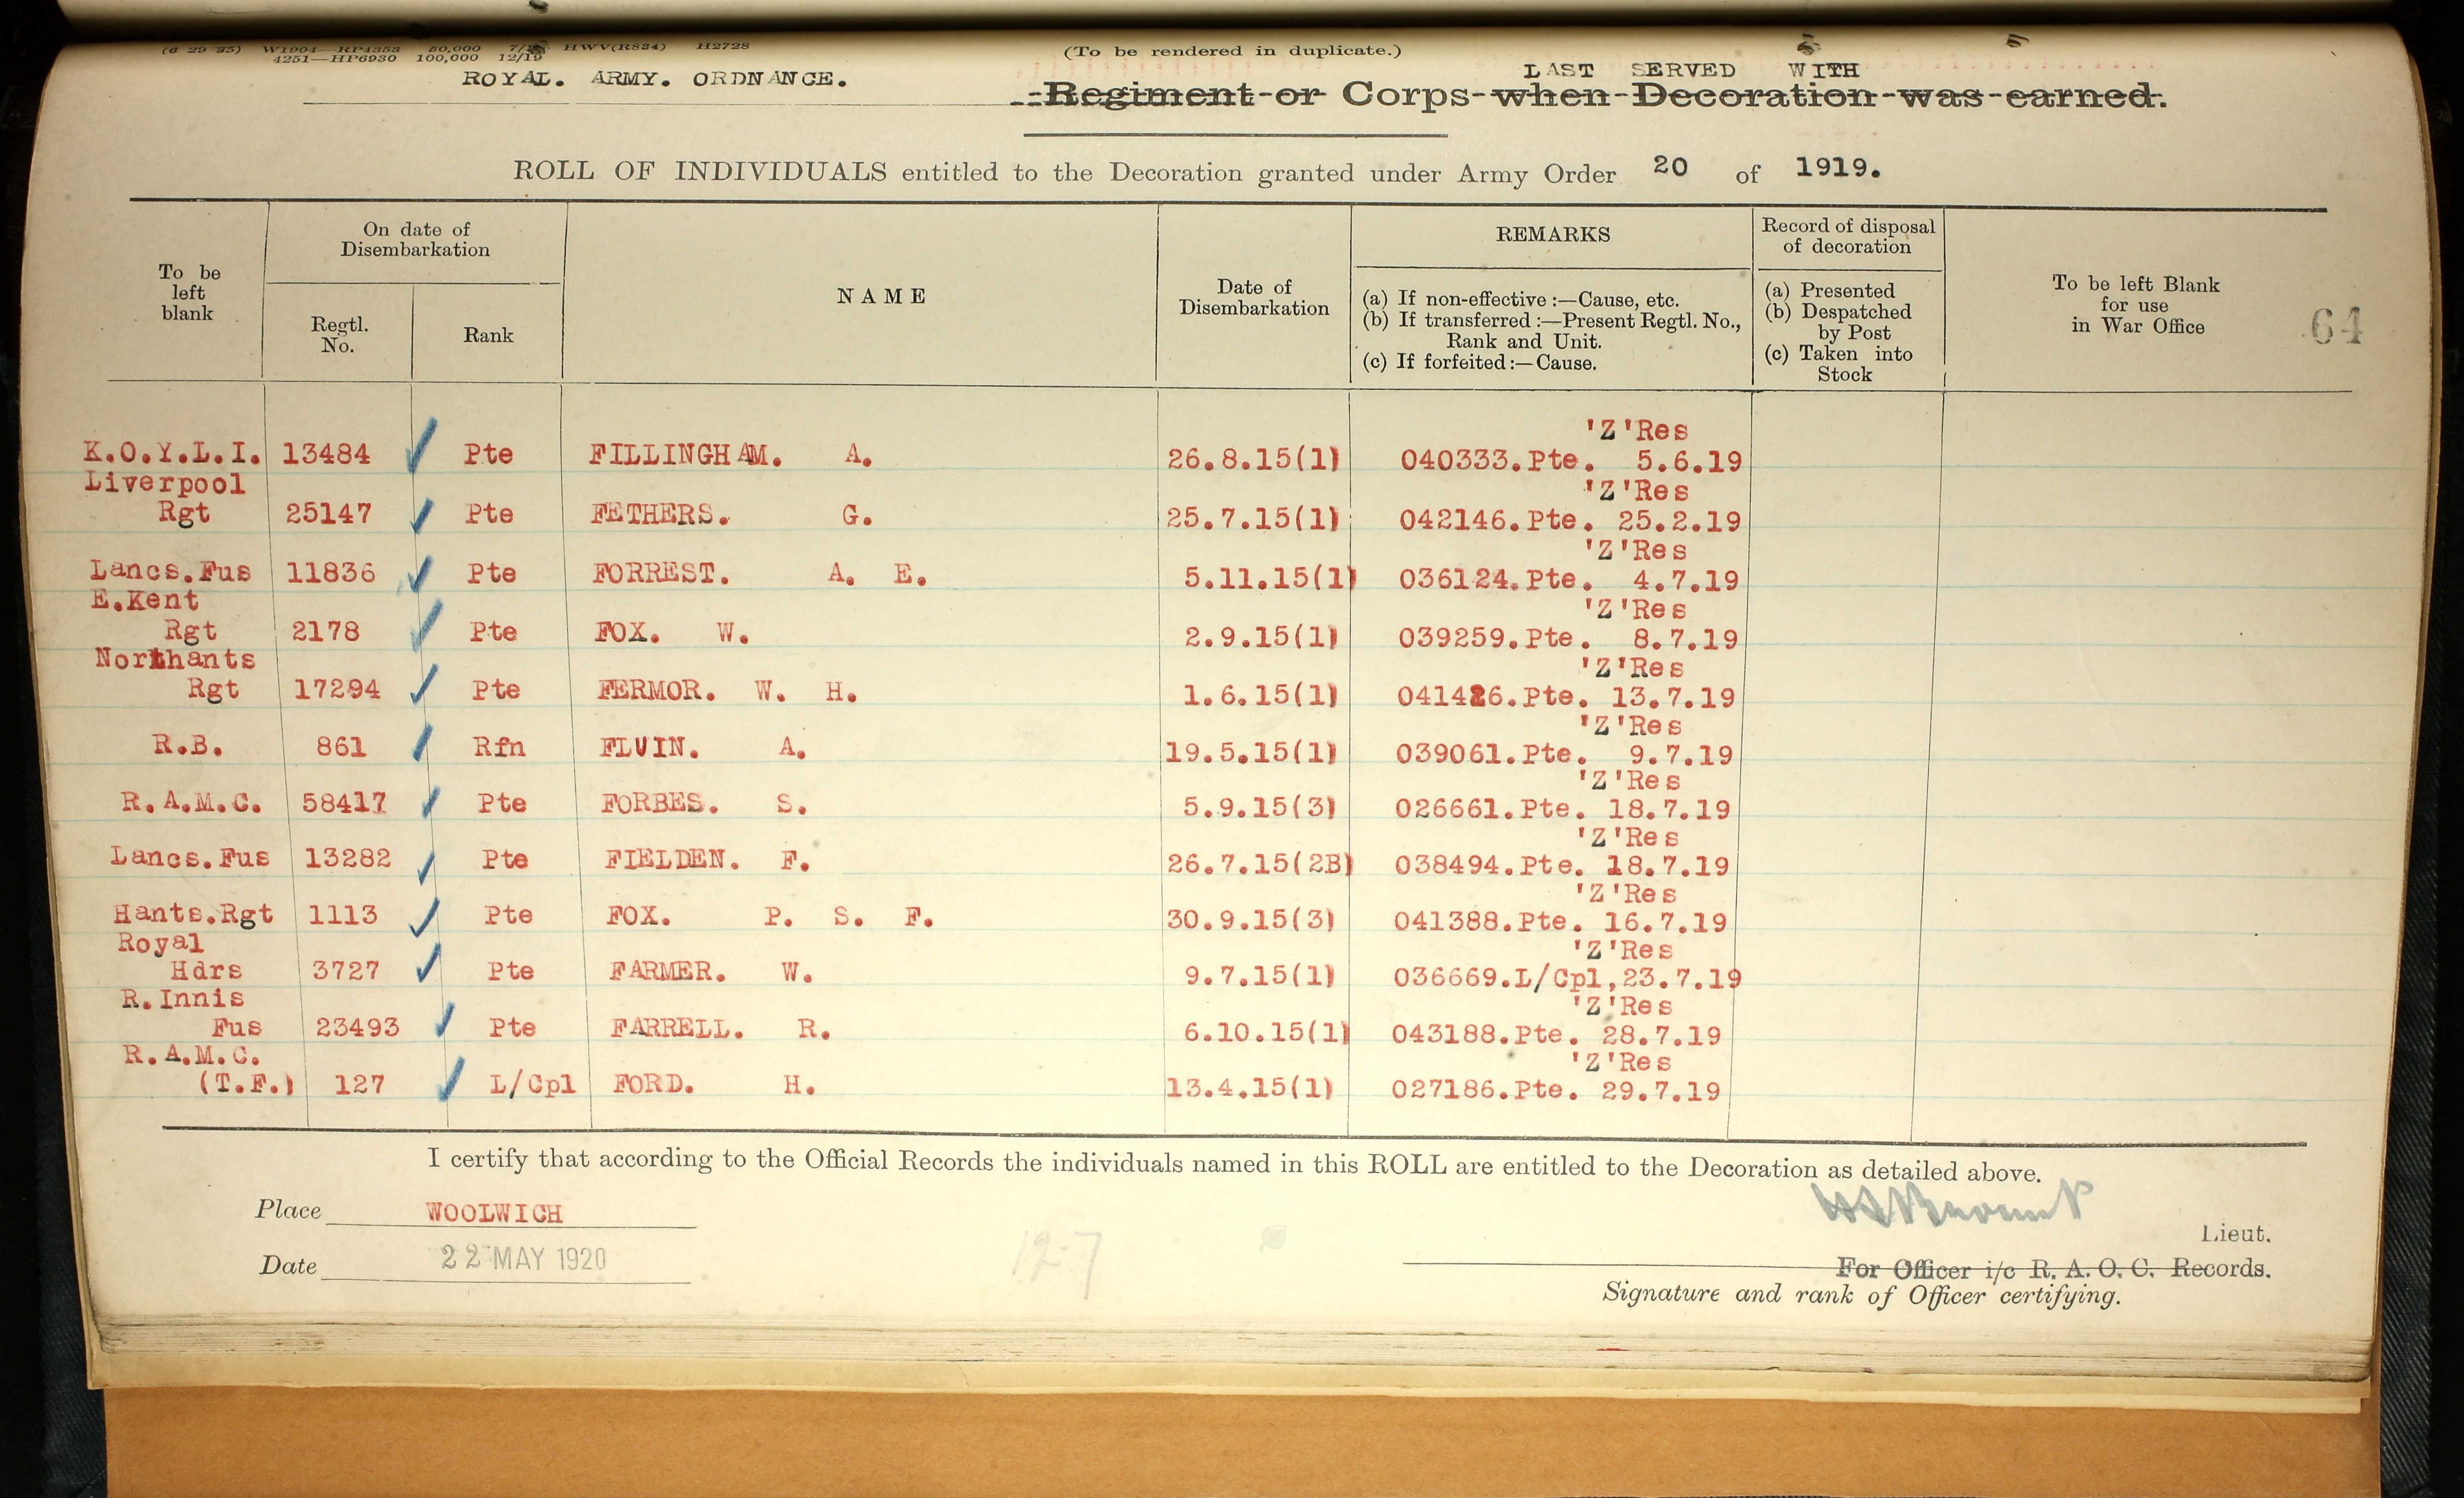 (6 29 35) W1904—RP4353 50,000 HWV(R834) H2728
4251—HP6930 100,000 12/19
(To be rendered in duplicate.)
ROYAL. ARMY. ORDNANCE.
LAST SERVED WITH
Regiment or Corps when Decoration was earned.
ROLL OF INDIVIDUALS entitled to the Decoration granted under Army Order 20 of 1919.
To be left blank
On date of Disembarkation
Regtl. No.
Rank
NAME
Date of Disembarkation
REMARKS
(a) If non-effective :—Cause, etc.
(b) If transferred :—Present Regtl. No., Rank and Unit.
(c) If forfeited :—Cause.
Record of disposal of decoration
(a) Presented
(b) Despatched by Post
(c) Taken into Stock
To be left Blank for use in War Office
64
'Z'Res
K.O.Y.L.I. 13484 Pte FILLINGHAM. A. 26.8.15(1) 040333.Pte. 5.6.19
Liverpool 'Z'Res
Rgt 25147 Pte FETHERS. G. 25.7.15(1) 042146.Pte. 25.2.19
'Z'Res
Lancs.Fus 11836 Pte FORREST. A. E. 5.11.15(1) 036124.Pte. 4.7.19
E.Kent 'Z'Res
Rgt 2178 Pte FOX. W. 2.9.15(1) 039259.Pte. 8.7.19
Northants 'Z'Res
Rgt 17294 Pte FERMOR. W. H. 1.6.15(1) 041426.Pte. 13.7.19
'Z'Res
R.B. 861 Rfn FLUIN. A. 19.5.15(1) 039061.Pte. 9.7.19
'Z'Res
R.A.M.C. 58417 Pte FORBES. S. 5.9.15(3) 026661.Pte. 18.7.19
'Z'Res
Lancs.Fus 13282 Pte FIELDEN. F. 26.7.15(2B) 038494.Pte. 18.7.19
'Z'Res
Hants.Rgt 1113 Pte FOX. P. S. F. 30.9.15(3) 041388.Pte. 16.7.19
Royal 'Z'Res
Hdrs 3727 Pte FARMER. W. 9.7.15(1) 036669.L/Cpl,23.7.19
R.Innis 'Z'Res
Fus 23493 Pte FARRELL. R. 6.10.15(1) 043188.Pte. 28.7.19
R.A.M.C. 'Z'Res
(T.F.) 127 L/Cpl FORD. H. 13.4.15(1) 027186.Pte. 29.7.19
I certify that according to the Official Records the individuals named in this ROLL are entitled to the Decoration as detailed above.
Place WOOLWICH
Lieut.
Date 22 MAY 1920
127
For Officer i/c R. A. O. C. Records.
Signature and rank of Officer certifying.